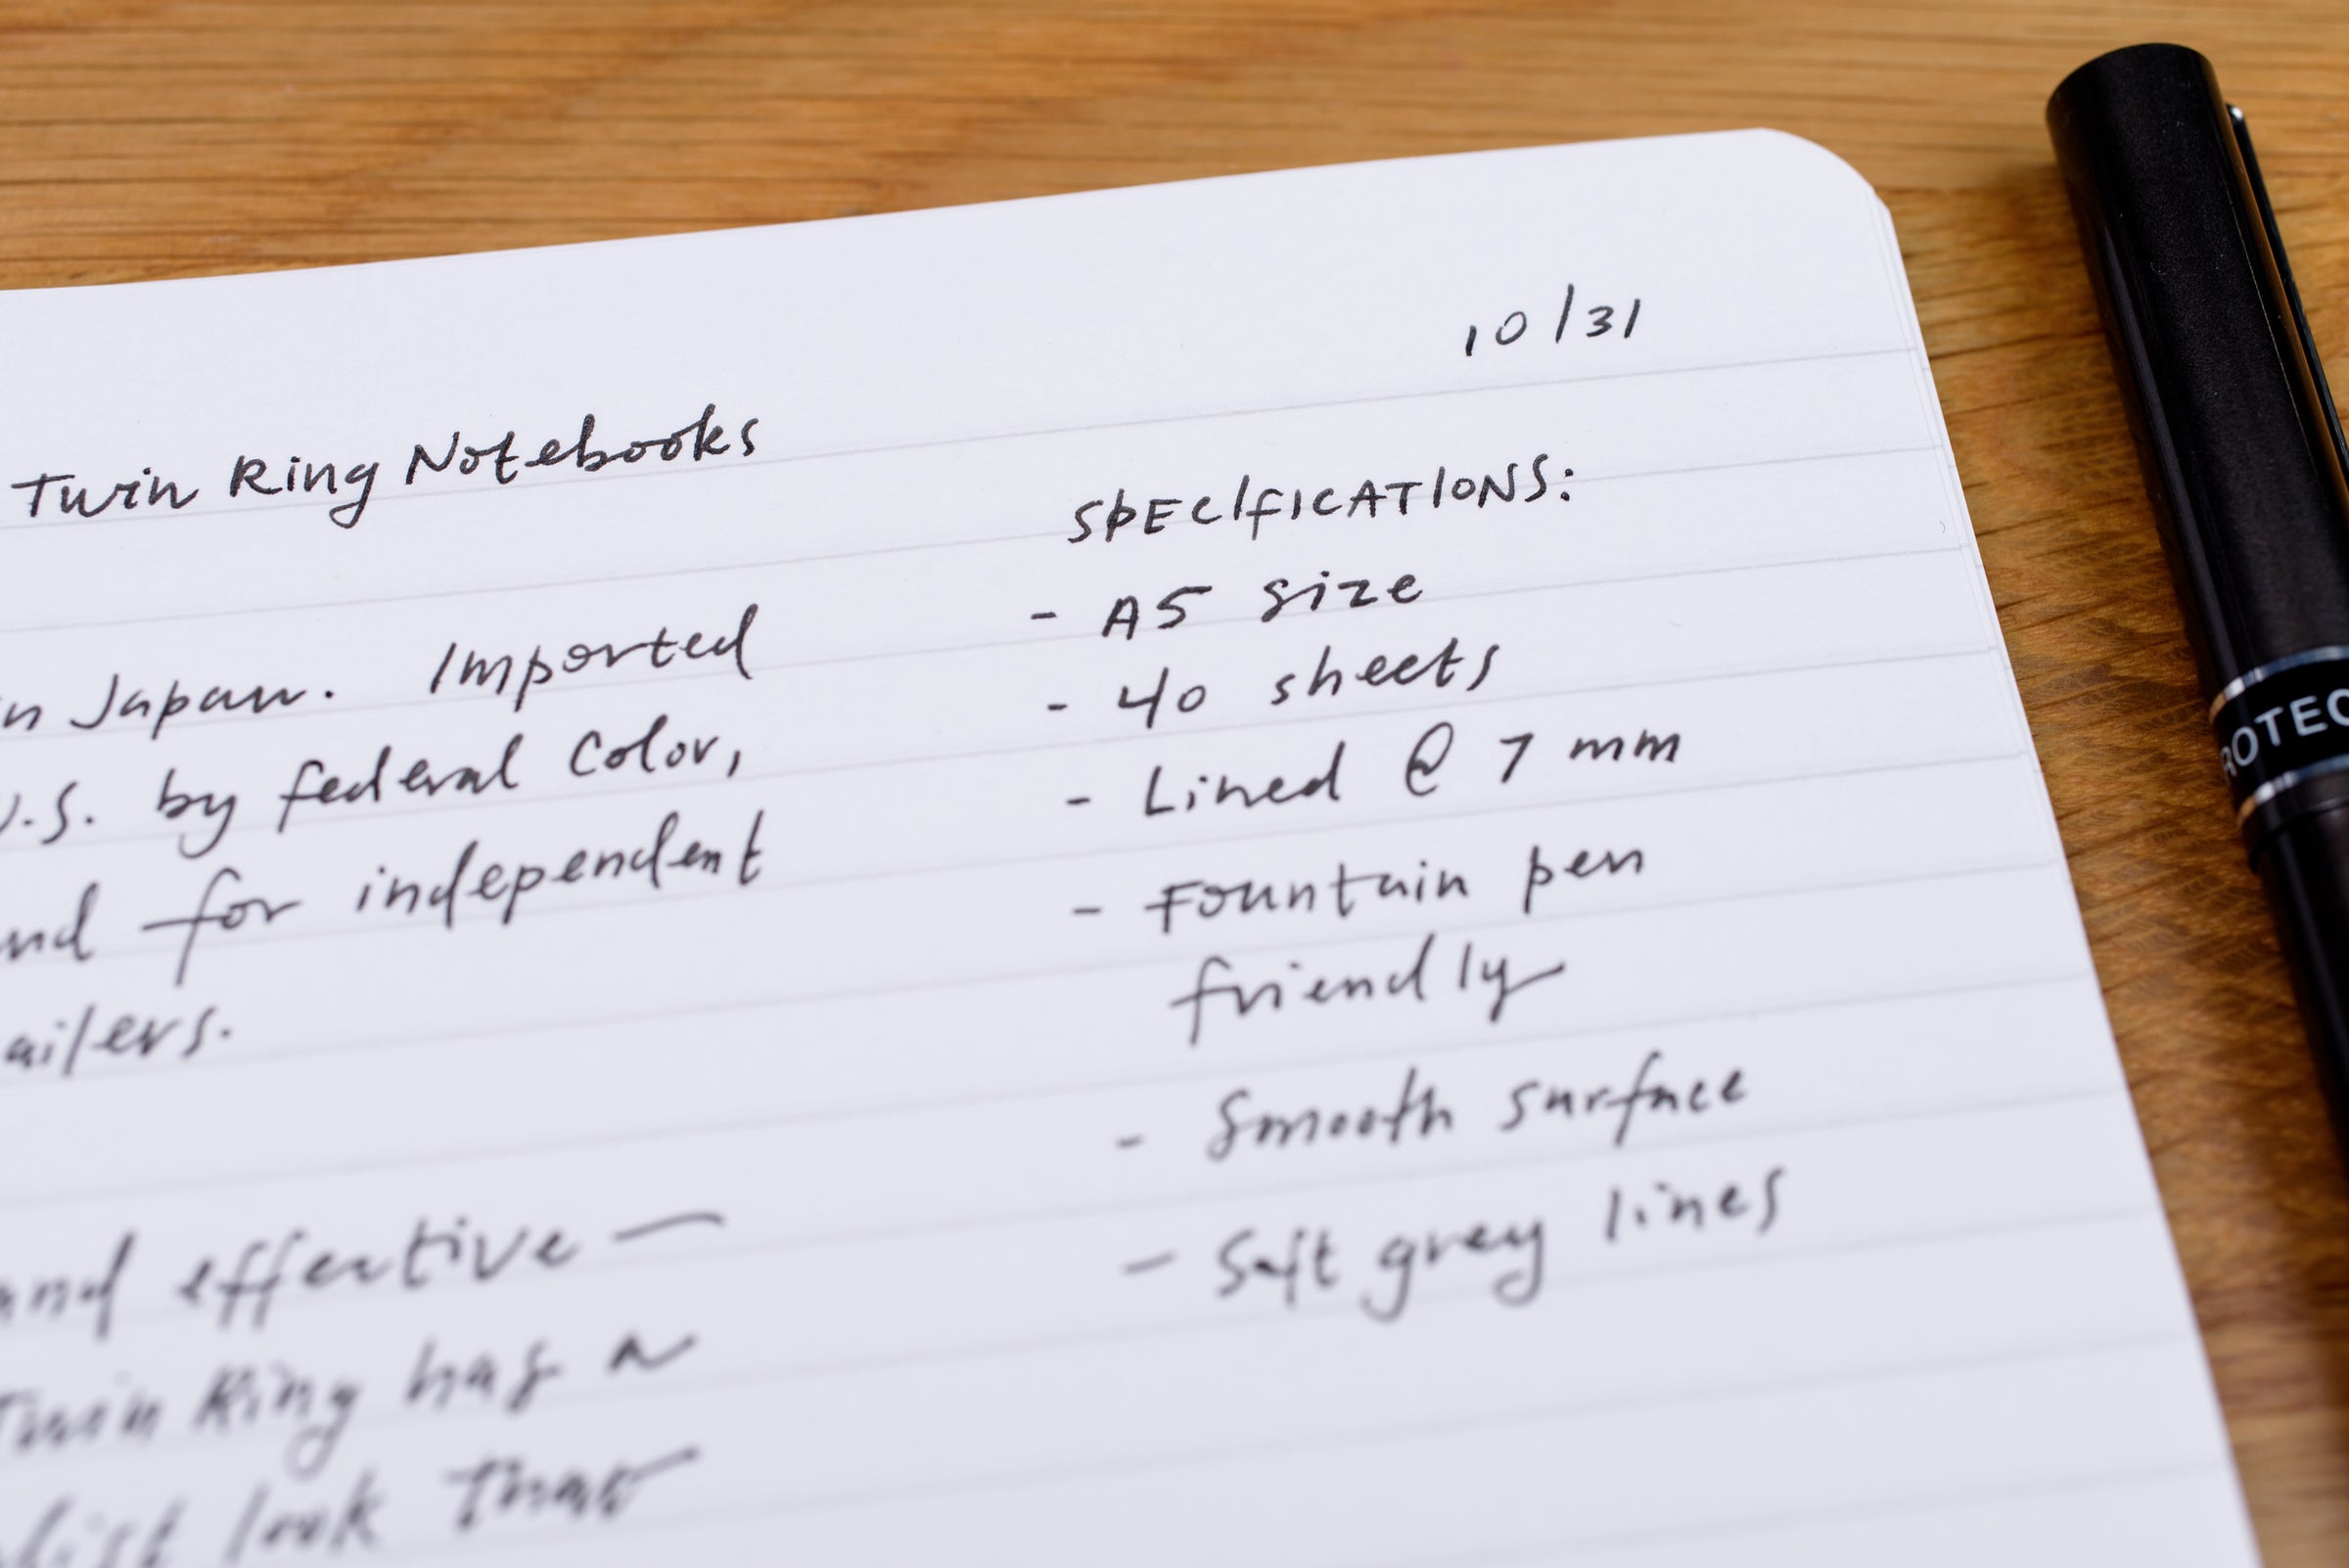 10/31
Twin Ring Notebooks
in Japan. Imported
U.S. by federal color,
and for independent
ailers.
and effective —
Twin Ring has a
alist look that
SPECIFICATIONS:
- A5 size
- 40 sheets
- Lined @ 7 mm
- Fountain pen
friendly
- Smooth surface
- Soft grey lines
ROTEC